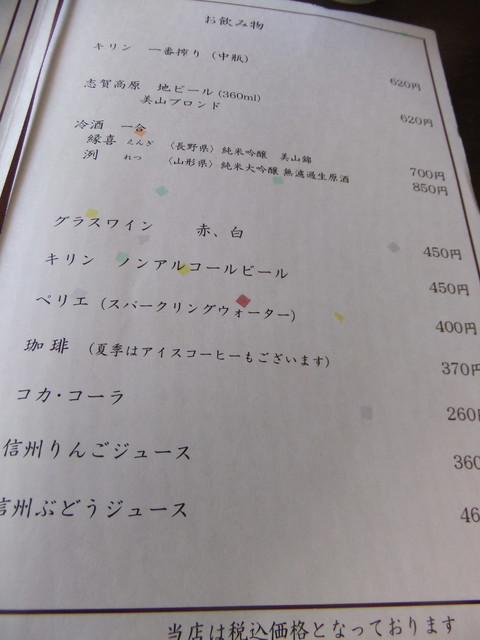 お飲み物
キリン 一番搾り (中瓶) 620円
志賀高原 地ビール (360ml)
美山ブロンド 620円
冷酒 一合
縁喜 えんぎ 〈長野県〉 純米吟醸 美山錦 700円
洌 れつ 〈山形県〉 純米大吟醸 無濾過生原酒 850円
グラスワイン 赤、白 450円
キリン ノンアルコールビール 450円
ペリエ (スパークリングウォーター) 400円
珈琲 (夏季はアイスコーヒーもございます) 370円
コカ・コーラ 260円
信州りんごジュース 360
信州ぶどうジュース 46
当店は税込価格となっております